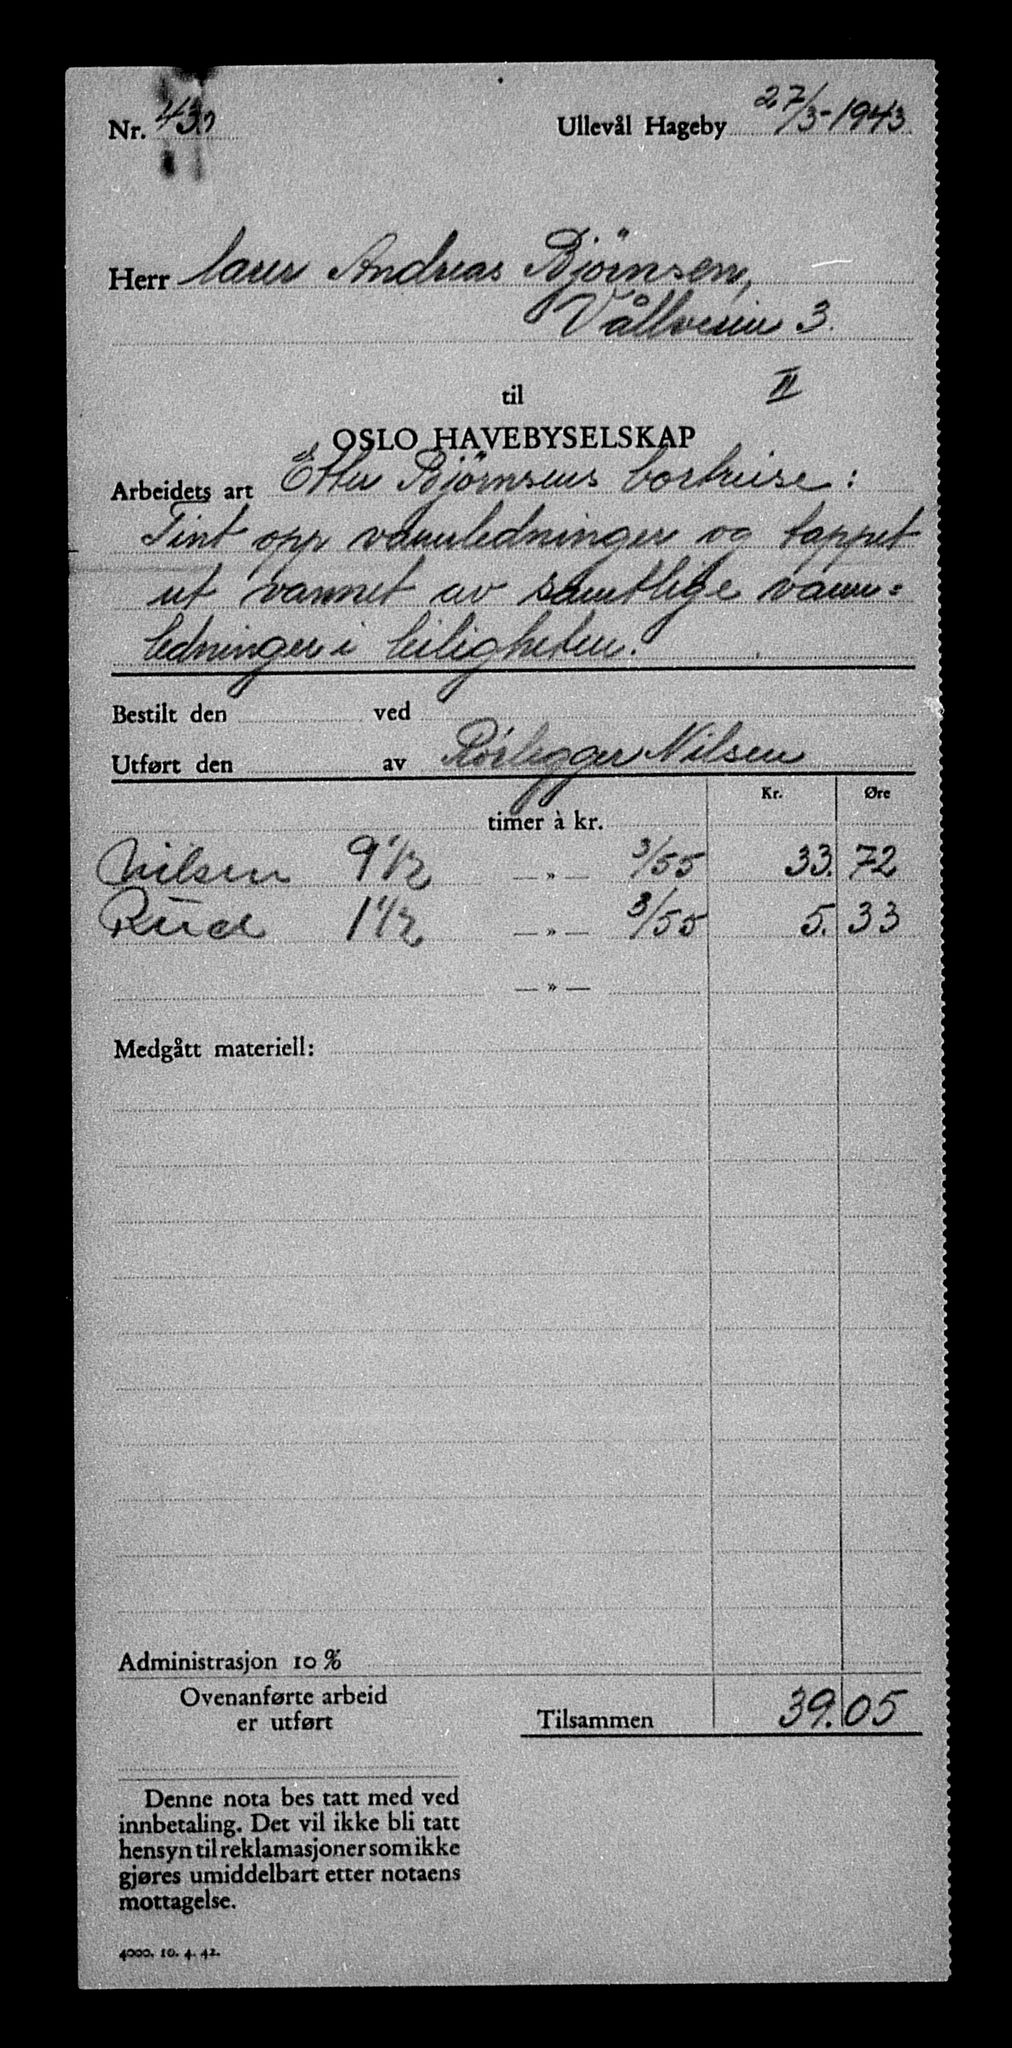 Nr. 430 Ullevål Hageby 27/3-1943
Herr lærer Andreas Bjørnsen,
Vållveien 3.
II
til
OSLO HAVEBYSELSKAP
Arbeidets art Etter Bjørnsens bortreise:
Tint opp vannledninger og tappet
ut vannet av samtlige vann=
ledninger i leiligheten.
Bestilt den ved
Utført den av Rørlegger Nilsen
Kr. Øre
timer à kr.
Nilsen 9 1/2 — „ — 3/55 33. 72
Rud 1 1/2 — „ — 3/55 5. 33
— „ —
Medgått materiell:
Administrasjon 10 %
Ovenanførte arbeid
er utført
Tilsammen 39.05
Denne nota bes tatt med ved
innbetaling. Det vil ikke bli tatt
hensyn til reklamasjoner som ikke
gjøres umiddelbart etter notaens
mottagelse.
4000. 10. 4. 42.